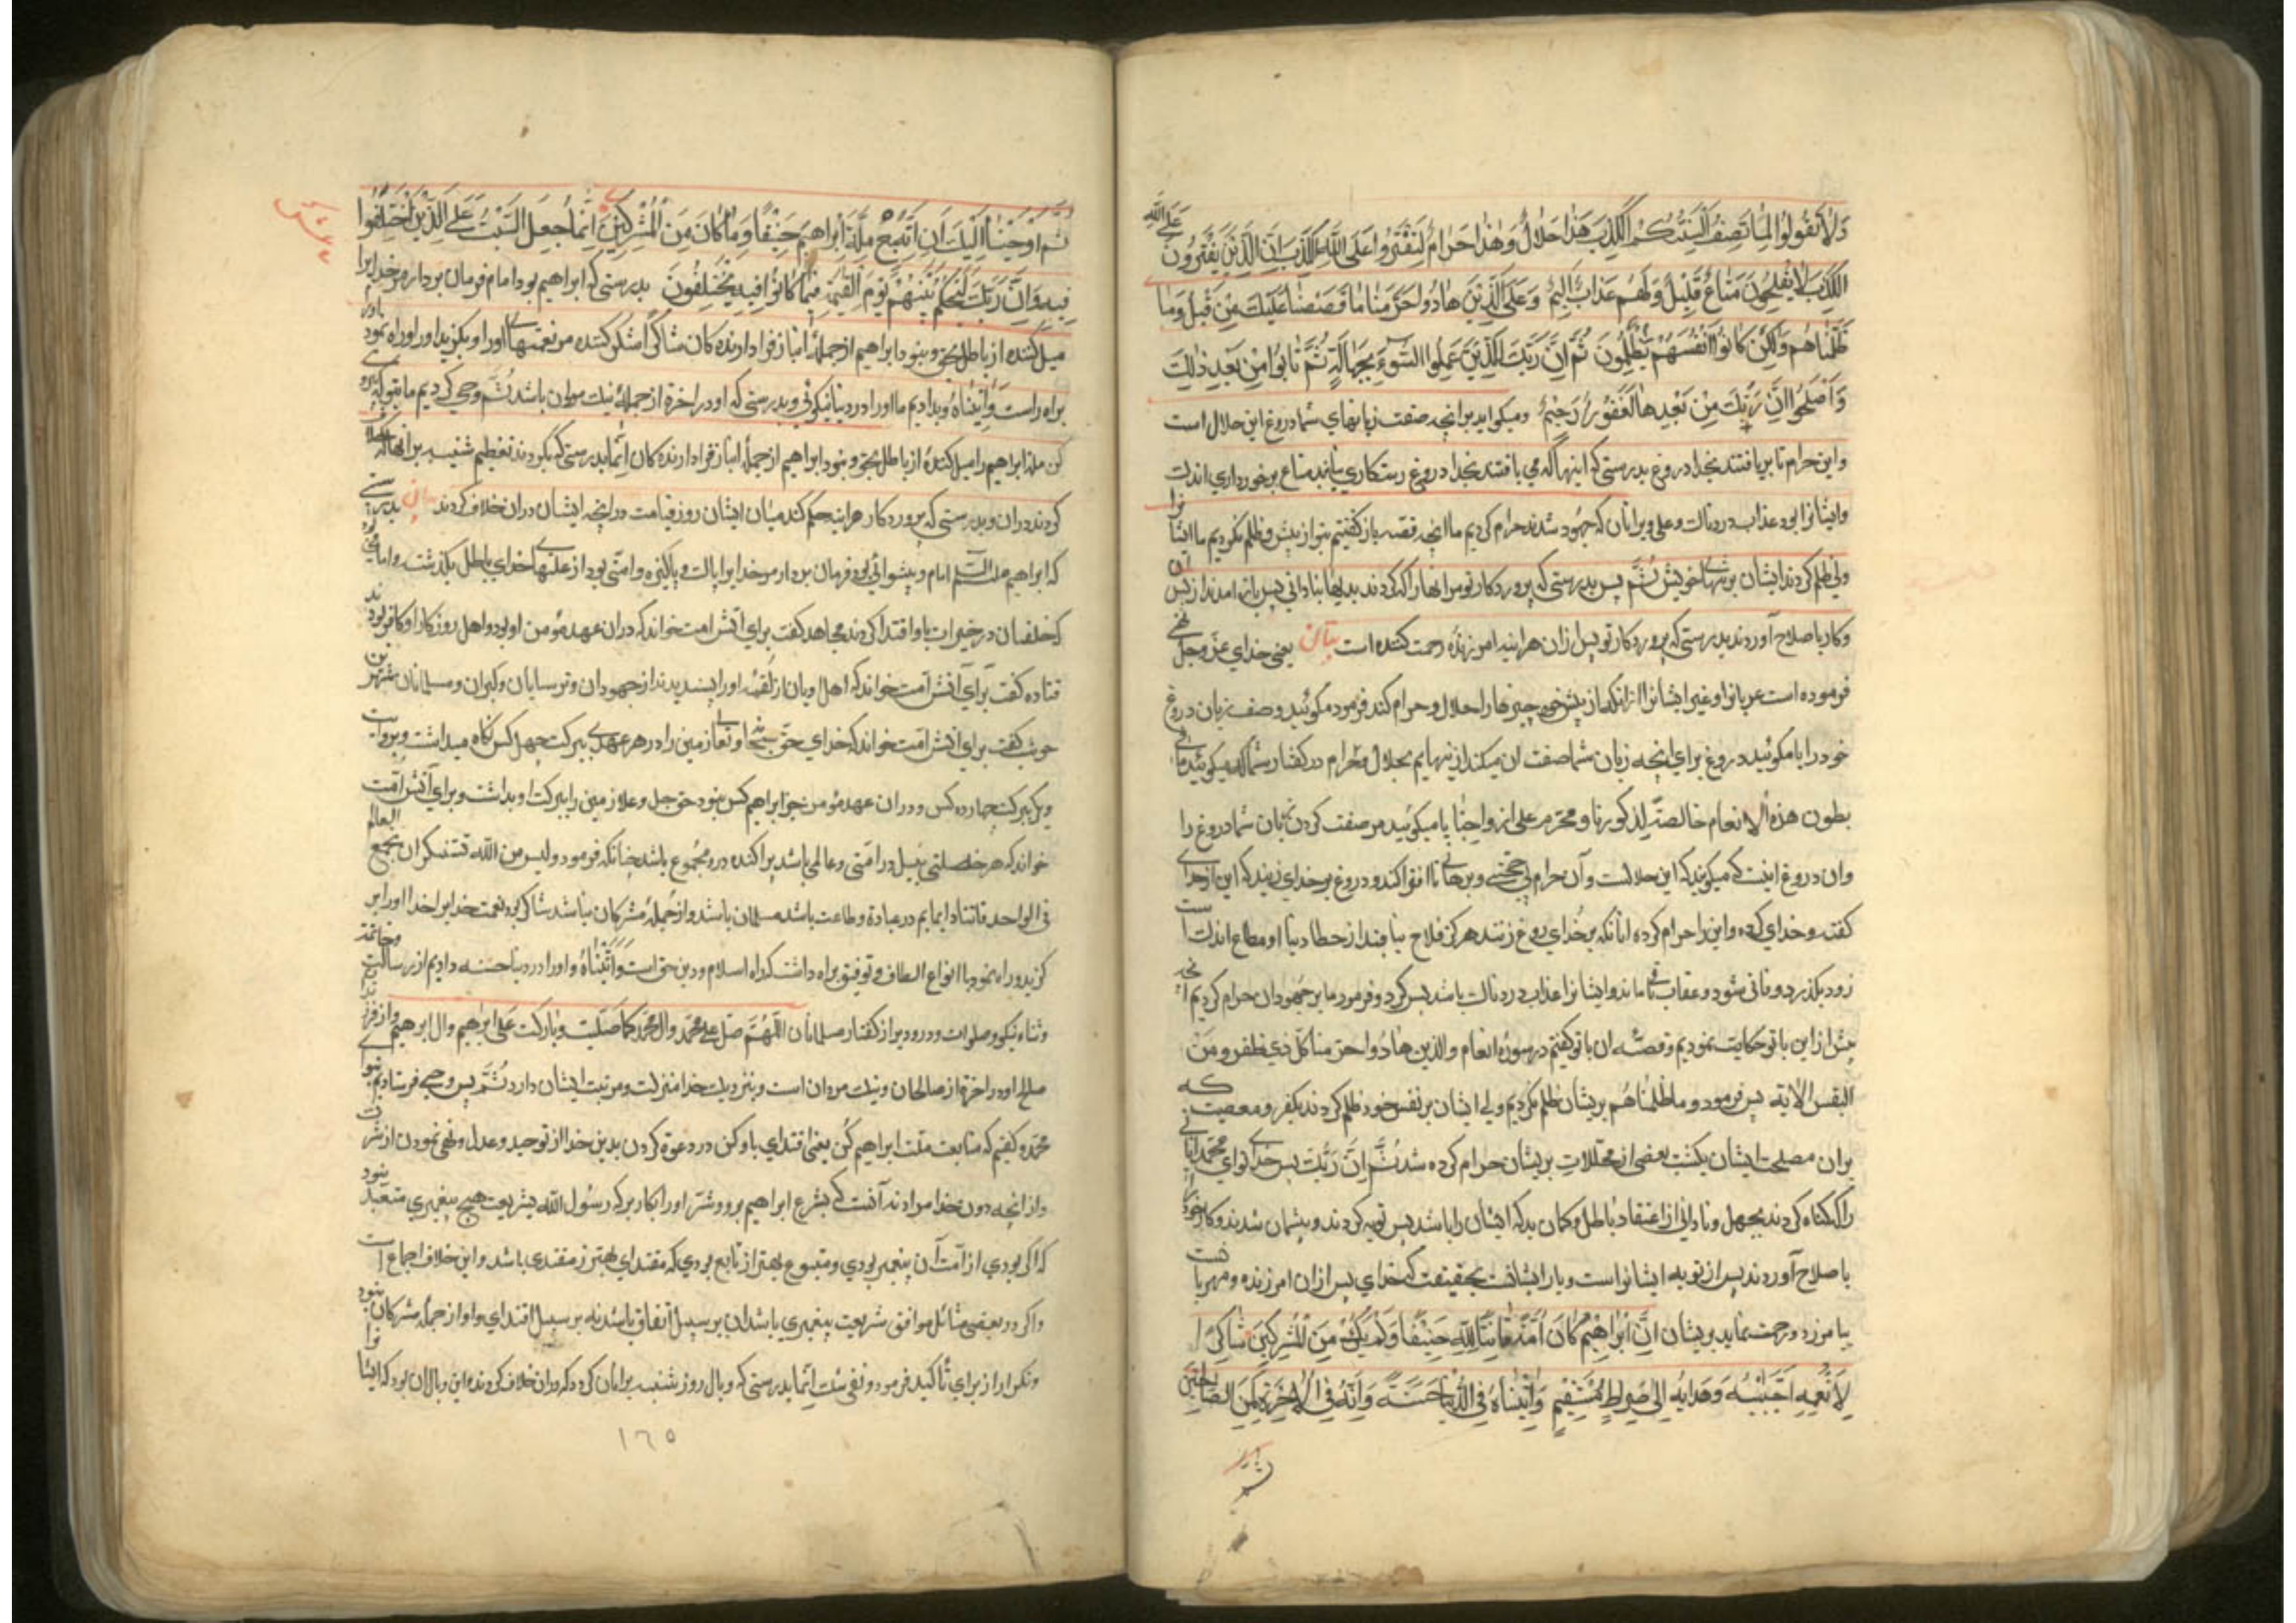 وَلَا تَقُولُوا لِمَا تَصِفُ أَلْسِنَتُكُمُ الْكَذِبَ هَذَا حَلَالٌ وَهَذَا حَرَامٌ لِتَفْتَرُوا عَلَى اللَّهِ الْكَذِبَ إِنَّ الَّذِينَ يَفْتَرُونَ عَلَى اللَّهِ
الْكَذِبَ لَا يُفْلِحُونَ مَتَاعٌ قَلِيلٌ وَلَهُمْ عَذَابٌ أَلِيمٌ وَعَلَى الَّذِينَ هَادُوا حَرَّمْنَا مَا قَصَصْنَا عَلَيْكَ مِنْ قَبْلُ وَمَا
ظَلَمْنَاهُمْ وَلَكِنْ كَانُوا أَنْفُسَهُمْ يَظْلِمُونَ ثُمَّ إِنَّ رَبَّكَ لِلَّذِينَ عَمِلُوا السُّوءَ بِجَهَالَةٍ ثُمَّ تَابُوا مِنْ بَعْدِ ذَلِكَ
وَأَصْلَحُوا إِنَّ رَبَّكَ مِنْ بَعْدِهَا لَغَفُورٌ رَحِيمٌ ومیکوئید برانچه صفت زبانهای شما دروغ این حلال است
واین حرام تا بربافتند بخدا دروغ بدرستی که اینها که می بافتند بخدا دروغ رستکاری نیابند متاع برخورداری اندک
وایشانرا بود عذاب دردناک وعلی وبرانان که جهود شدند حرام کردیم ما انچه قصه باز کفتیم بتو از پیش وظلم نکردیم ما ایشانرا
ولی ظلم کردند ایشان بر تنهای خویش ثُمَّ پس بدرستی که پروردکار تو مرانها را که کردند بدیها بنادانی پس باز امدند از پس ان
وکار باصلاح آوردند بدرستی که پروردکار تو پس ازان هراینه امرزنده رحمت کننده است بیان یعنی خدای عز وجل
فرموده است عربانرا وغیر ایشانرا ازانکه از پیش خود چیزها را حلال وحرام کند فرمود مکوئید وصف زبان دروغ
خود را یا مکوئید دروغ برای انچه زبان شما صفت ان میکند از بهایم بحلال وحرام در کفتار شما که میکوئید ما فی
بطون هذه الانعام خالصة لذکورنا ومحرم علی ازواجنا یا میکوئید مر صفت کردن زبان شما دروغ را
وان دروغ اینست که میکویند که این حلالست وآن حرام بی حجتی وبرهانی تا افترا کند ودروغ بر خدای زیند که این از خدای
کفته وخدای کرده واین را حرام کرده انانکه بر خدای دروغ زنند هرکز فلاح نیابند از حطام دنیا او متاع اندکست
زود بکذرد وفانی شود وعقاب باقی ماند وایشانرا عذاب دردناک باشد پس کرد وفرمود ما بر جهودان حرام کردیم انچه
پیش ازاین با تو حکایت نمودیم وقصه ان با تو کفتیم در سوره انعام والذین هادوا حرمنا کل ذی ظفر ومن
البقر الایة پس فرمود وما ظلمناهم بریشان ظلم نکردیم ولی ایشان بر نفس خود ظلم کردند بکفر ومعصیت که
بران مصلحت ایشان بکشت بعضی از محللات بریشان حرام کرده شد ثُمَّ إِنَّ رَبَّكَ پس خدای تو ای محمد انانی
را که کناه کردند بجهل ونادانی از اعتقاد باطل وکمان بد که ایشان را باشد پس توبه کردند وپشیمان شدند وکار خود
باصلاح آوردند پس از توبه ایشانراست بحقیقت که خدای پس ازان امرزنده ومهربا
بیامرزد ورحمت نماید بریشان إِنَّ إِبْرَاهِيمَ كَانَ أُمَّةً قَانِتًا لِلَّهِ حَنِيفًا وَلَمْ يَكُ مِنَ الْمُشْرِكِينَ شَاكِرًا
لِأَنْعُمِهِ اجْتَبَيهُ وَهَدَايهُ إِلَى صِرَاطٍ مُسْتَقِيمٍ وَآتَيْنَاهُ فِي الدُّنْيَا حَسَنَةً وَإِنَّهُ فِي الْآخِرَةِ لَمِنَ الصَّالِحِينَ
ثُمَّ أَوْحَيْنَا إِلَيْكَ أَنِ اتَّبِعْ مِلَّةَ إِبْرَاهِيمَ حَنِيفًا وَمَا كَانَ مِنَ الْمُشْرِكِينَ إِنَّمَا جُعِلَ السَّبْتُ عَلَى الَّذِينَ اخْتَلَفُوا
فِيهِ وَإِنَّ رَبَّكَ لَيَحْكُمُ بَيْنَهُمْ يَوْمَ الْقِيمَةِ فِيمَا كَانُوا فِيهِ يَخْتَلِفُونَ بدرستی که ابراهیم بود امام فرمان بردار مر خدایرا
میل کننده از باطل بحق ونبود ابراهیم از جمله انباز فرا دارنده کان شاکرا شکر کننده مر نعمتهای اورا وبکزید اورا وراه نمود
براه راست وَآتَيْنَاهُ وبدادیم ما اورا در دنیا نیکوئی وبدرستی که او در اخرة از جمله نیک مردان باشد ثُمَّ وحی کردیم ما بتو که
کن ملة ابراهیم را میل کننده از باطل بحق ونبود ابراهیم از جمله انباز فرا دارنده کان إِنَّمَا بدرستی که بکردند تعظیم شنبه برانها که
کردند دران وبدرستی که پروردکار هراینه حکم کند میان ایشان روز قیامت در انچه ایشان دران خلاف کردند بیان بدرستی
که ابراهیم علیه السلم امام وپیشوائی بود فرمان بردار مر خدایرا پاک وپاکیزه
که خلفان در خیرات باو اقتدا کردند مجاهد کفت برای آنش امت خواند که دران عهد مؤمن او بود واهل روزکار او کافر بودند
قتاده کفت برای آنش امت خواند که اهل ادیان از اورا پسندیدند از جهودان وترسایان وکبران ومسلمانان شهر بن
حوشب کفت برای آنش امت خواند که خدای حق سبحانه وتعالی زمین را در هر عهدی ببرکت چهل کس نکاه میداشت وبروایت
دیکر ببرکت چهارده کس ودران عهد مؤمن جز ابراهیم کس نبود حق جل وعلا زمین را ببرکت او بداشت وبرای آنش امت
خواند که هر خصلتی نبیل در امتی وعالمی باشد پراکنده درو مجموع باشد چنانکه فرمود ولیس من الله مستنکر ان یجمع العالم
فی الواحد قانتا دایما در عبادة وطاعت باشد مسلمان باشد واز جمله مشرکان نباشد شاکر بود نعمت خدایرا خدا اورا بر
کزید وراه نمود با انواع الطاف وتوفیق براه داشت که راه اسلام ودین حق است وَآتَيْنَاهُ واورا در دنیا حسنه دادیم از رسالت
وثناء نیکو وصلوات ودرود براز کفتار مسلمانان اللهم صل علی محمد وال محمد کما صلیت وبارکت علی ابراهیم وال ابراهیم واز فرزند
صالح او در اخرة از صالحان ونیک مردان است وبنزدیک خدا منزلت ومرتبت ایشان دارد ثُمَّ پس وحی فرستادیم بتو ای
محمد وکفتیم که متابعت ملت ابراهیم کن یعنی اقتدای باو کن در دعوة کردن بدین خدا از توحید وعدل ونهی نمودن از شرک
که اکر بودی از امت آن پیغمبر بودی ومتبوع بهتر از تابع بودی که مقتدای بهتر ز مقتدی باشد واین خلاف اجماع است
واکر در بعضی مسائل موافق شریعت پیغمبری باشد ان بر سبیل اتفاق باشد نه بر سبیل اقتدای واو از جمله مشرکان نبود
وتکرار از برای تأکید فرمود إِنَّمَا بدرستی که وبال روز شنبه برانان کرد که دران خلاف کردند واین وبال ان بود که ایشانرا
١٦٥